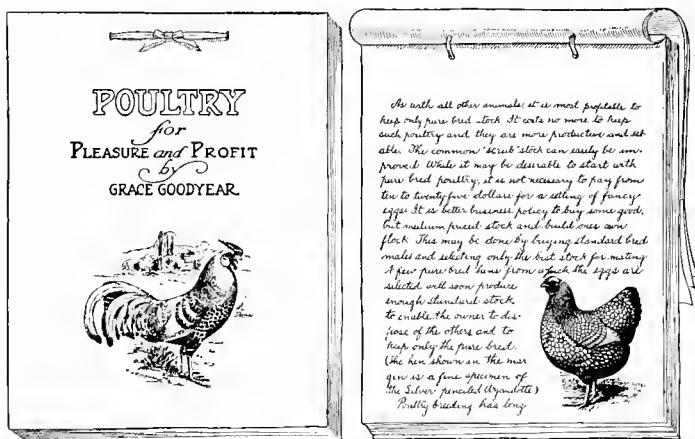 POULTRY
for
PLEASURE and PROFIT
by
GRACE GOODYEAR
As with all other animals, it is most profitable to
keep only pure bred stock It costs no more to keep
such poultry and they are more productive and sal
able. The common "scrub" stock can easily be im
proved While it may be desirable to start with
pure bred poultry, it is not necessary to pay from
ten to twenty five dollars for a setting of fancy
eggs It is better business policy to buy some good,
but medium priced stock and build ones own
flock This may be done by buying standard bred
males and selecting only the best stock for mating
A few pure bred hens from which the eggs are
selected will soon produce
enough standard stock
to enable the owner to dis-
pose of the others and to
keep only the pure bred.
(The hen shown in the mar
gin is a fine specimen of
the Silver penciled Wyandotte)
Poultry breeding has long